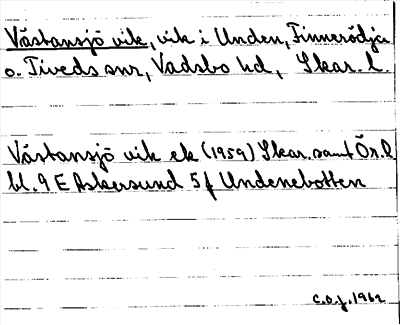 Västansjö vik, vik i Unden, Finnerödja
o. Tiveds snr, Vadsbo hd, Skar. l.
Västansjö vik ek (1959) Skar. samt Ör. l.
bl. 9 E Askersund 5 f Undenebotten
C.O.J. 1962